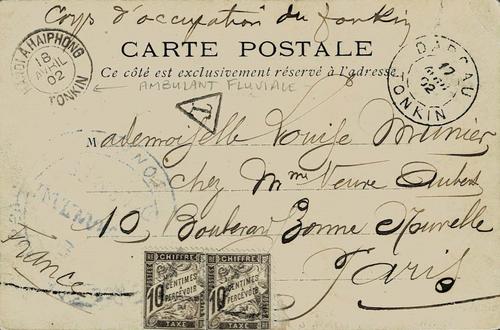 Corps d'occupation du Tonkin
HANOI A HAIPHONG
18
AVRIL
02
TONKIN
CARTE POSTALE
DAPCAU
17
02
TONKIN
Ce côté est exclusivement réservé à l'adresse
AMBULANT FLUVIALE
T
Mademoiselle Louise Munier
chez Mme Veuve Aubert
10 Boulevard Bonne Nouvelle
Paris
France
CHIFFRE
10 CENTIMES À PERCEVOIR
TAXE
CHIFFRE
10 CENTIMES À PERCEVOIR
TAXE